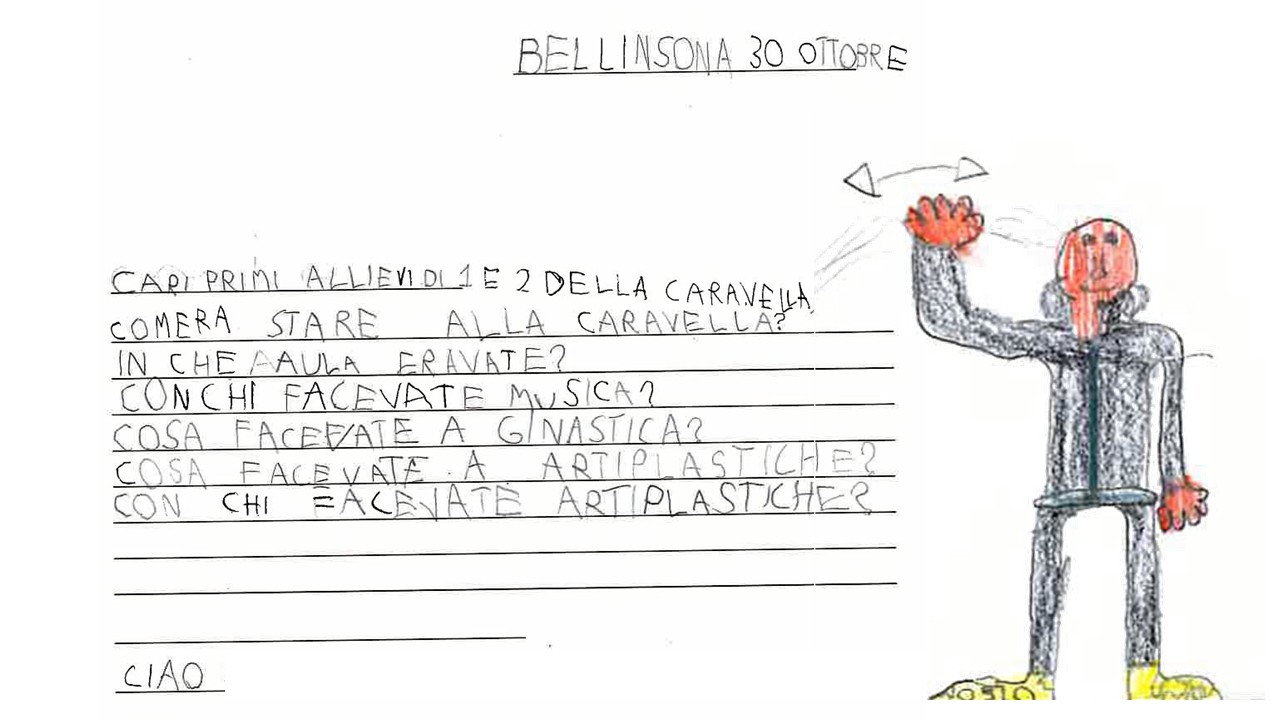 BELLINSONA 30 OTTOBRE
CARI PRIMI ALLIEVI DI 1 E 2 DELLA CARAVELLA
COMERA STARE ALLA CARAVELLA?
IN CHE AAULA ERAVATE?
CON CHI FACEVATE MUSICA?
COSA FACEVATE A GINASTICA?
COSA FACEVATE A ARTIPLASTICHE?
CON CHI FACEVATE ARTIPLASTICHE?
CIAO